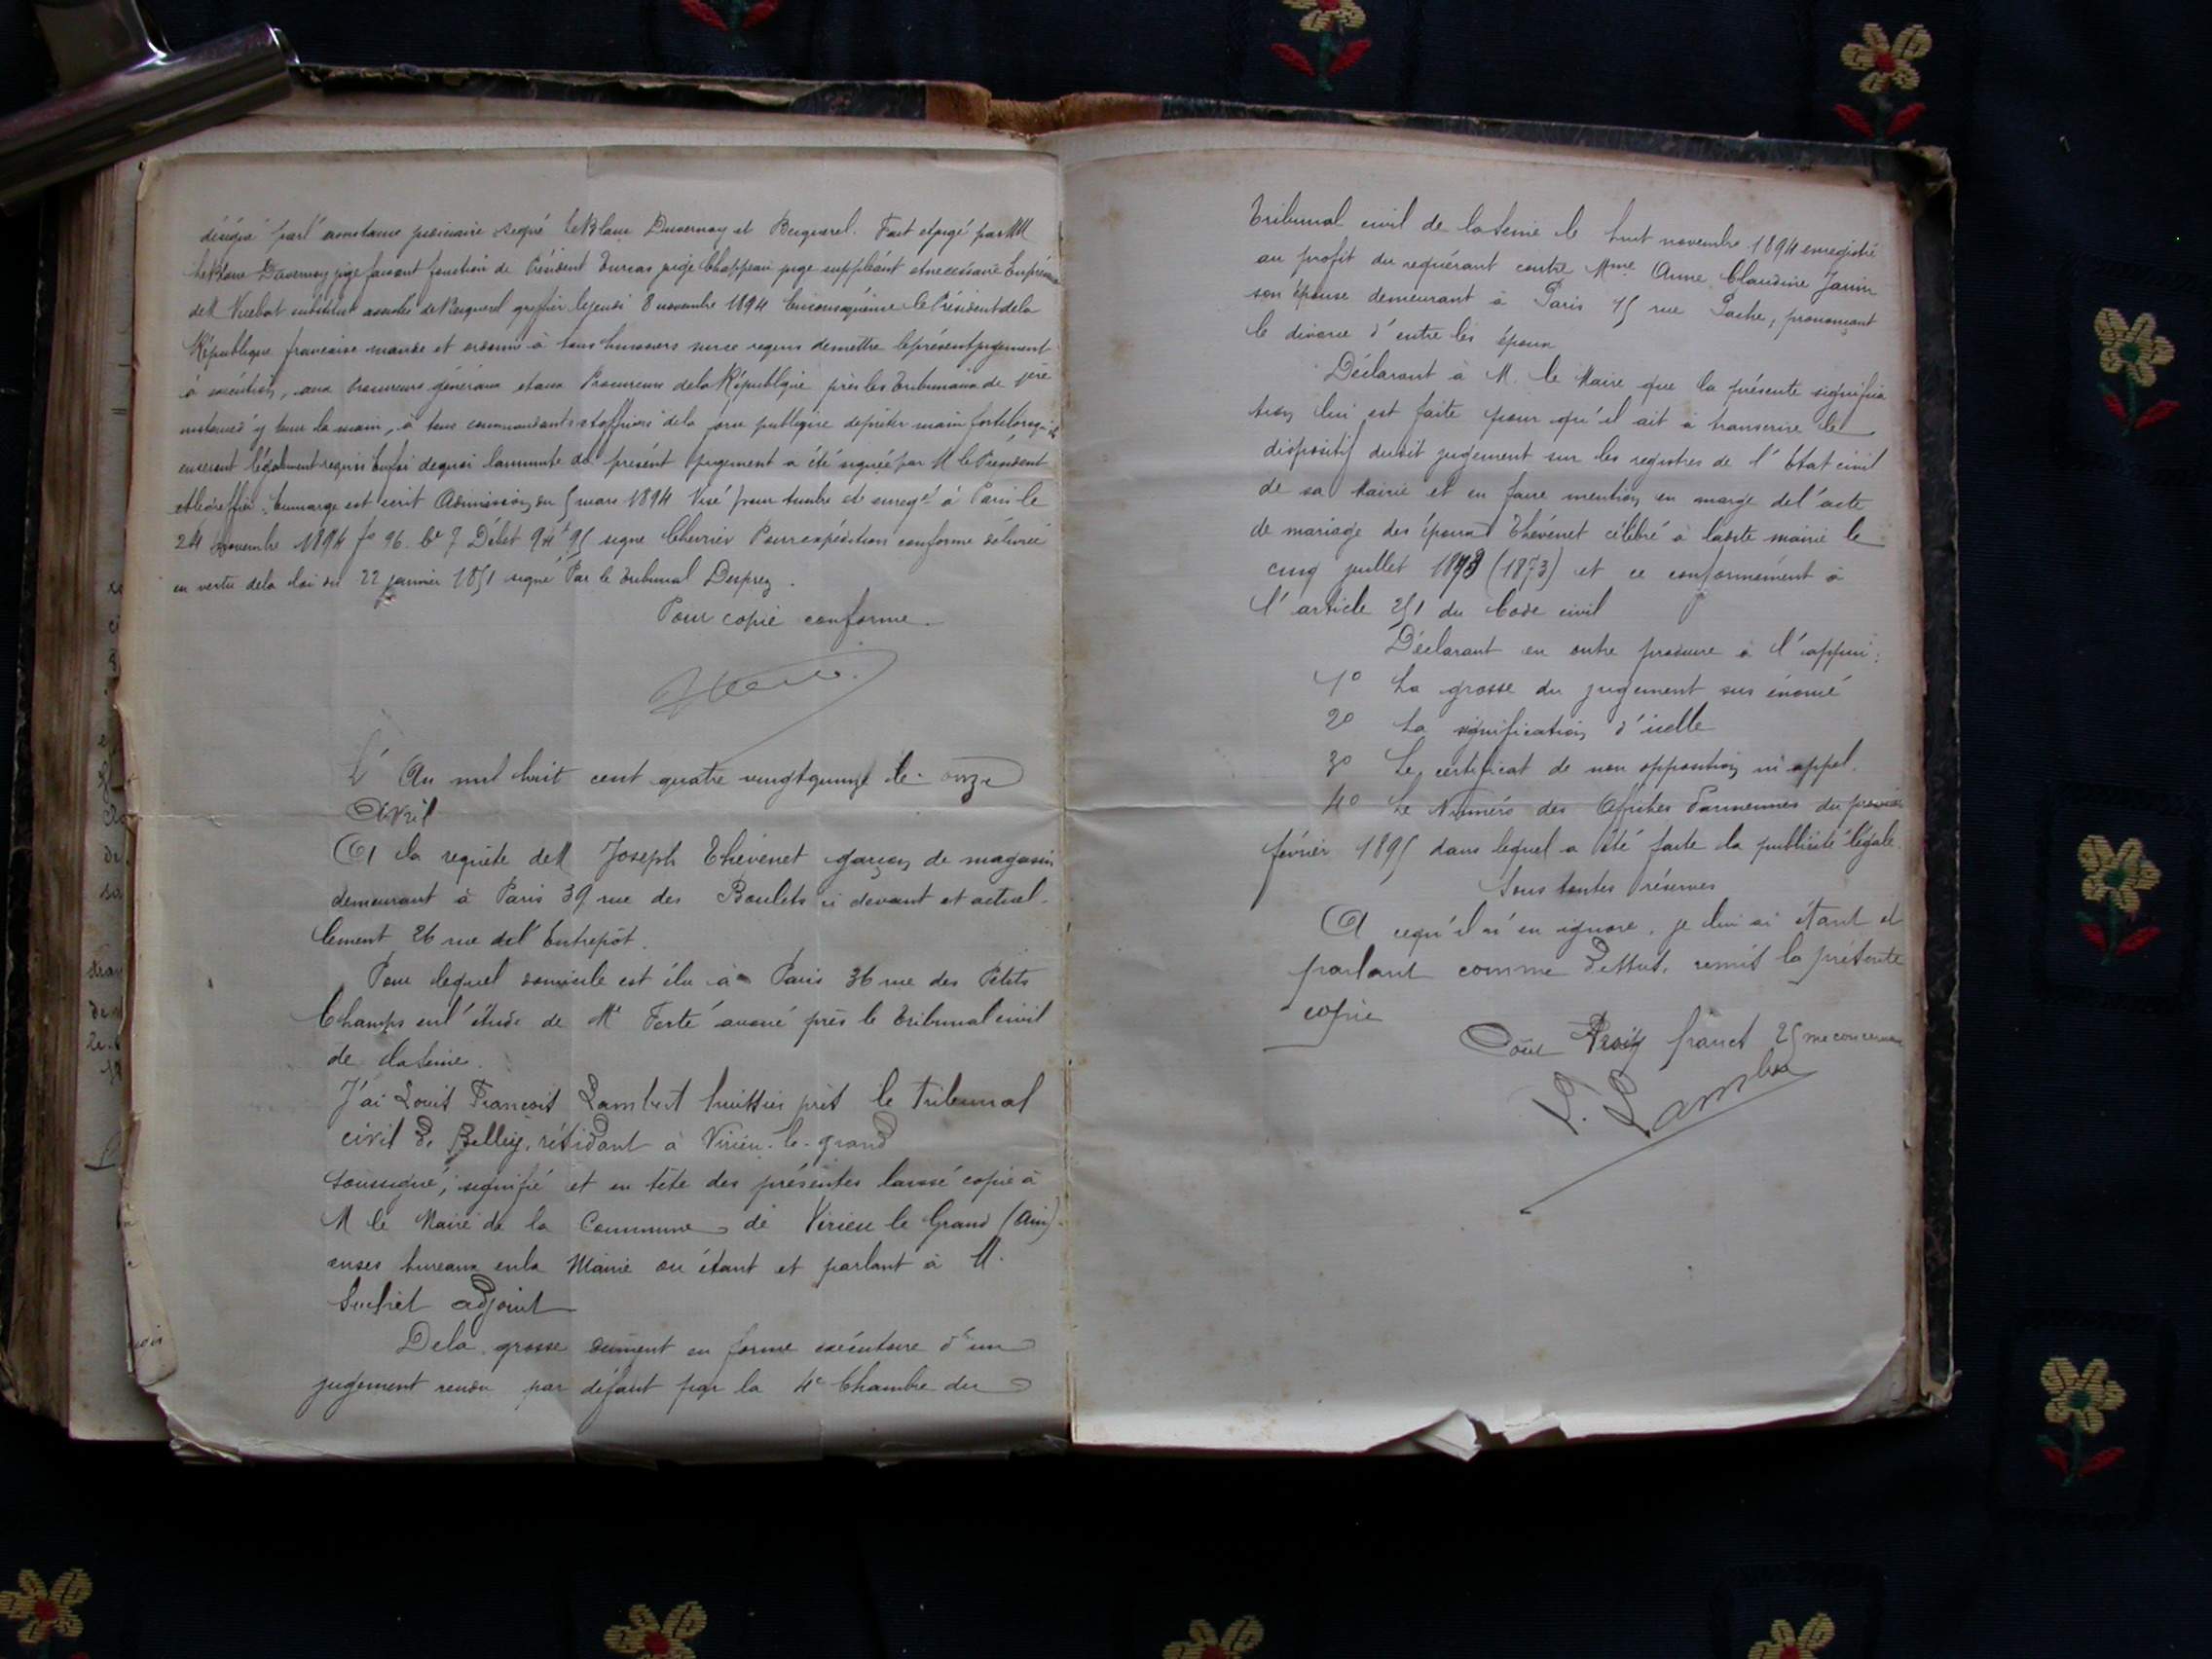 désigné par l'assistance judiciaire signé Le Blanc Duvernoy et Becquerel. Fait et jugé par MM
Le Blanc Duvernoy juge faisant fonction de Président Turcas juge Chappeau juge suppléant et nécessaire En présence
de M substitut assistés de Becquerel greffier le jeudi 8 novembre 1894 En conséquence le Président de la
République française mande et ordonne à tous huissiers sur ce requis de mettre le présent jugement
à exécution, aux Procureurs généraux et aux Procureurs de la République près les Tribunaux de 1ère
instance d'y tenir la main, à tous commandants et officiers de la force publique de prêter main forte lorsqu'ils
en seront légalement requis En foi de quoi la minute du présent jugement a été signée par M le Président
et le Greffier. En marge est écrit Admission du 5 mars 1894 Visé pour timbre et enregé à Paris le
24 novembre 1894 fo 96. Ce 7 Débet 94f 95 signé Chevrier Pour expédition conforme délivrée
en vertu de la loi du 22 janvier 1851 signé Par le Tribunal Desprez.
Pour copie conforme.
L'An mil huit cent quatre vingt quinze le onze
Avril
A la requête de M Joseph Thévenet garçon de magasin
demeurant à Paris 39 rue des Boulets ci devant et actuel-
lement 26 rue de l'Entrepôt.
Pour lequel domicile est élu à Paris 36 rue des Petits
Champs en l'étude de Me Ferté avoué près le Tribunal civil
de la Seine.
J'ai Louis François Lambert huissier près le Tribunal
civil de Belley, résidant à Virieu-le-grand
soussigné, signifié et en tête des présentes laissé copie à
M le Maire de la Commune de Virieu le Grand (Ain)
en ses bureaux en la Mairie ou étant et parlant à M.
Suchet adjoint
De la grosse dûment en forme exécutoire d'un
jugement rendu par défaut par la 4e Chambre du
Tribunal civil de la Seine le huit novembre 1894 enregistré
au profit du requérant contre Mme Anne Claudine Janin
son épouse demeurant à Paris 15 rue Pache, prononçant
le divorce d'entre les époux
Déclarant à M. le Maire que la présente significa
tion lui est faite pour qu'il ait à transcrire le
dispositif dudit jugement sur les registres de l'Etat civil
de sa Mairie et en faire mention en marge de l'acte
de mariage des époux Thévenet célébré à ladite mairie le
cinq juillet 1873 (1873) et ce conformément à
l'article 251 du Code civil
Déclarant en outre produire à l'appui:
1o La grosse du jugement sus énoncé
2o La signification d'icelle
3o Le certificat de non opposition ni appel.
4o Le Numéro des Affiches Parisiennes du premier
février 1895 dans lequel a été faite la publicité légale.
Sous toutes réserves
A ce qu'il n'en ignore, je lui ai étant et
parlant comme dessus, remis la présente
copie
Coût trois francs 25 me concernant
L. Lambert